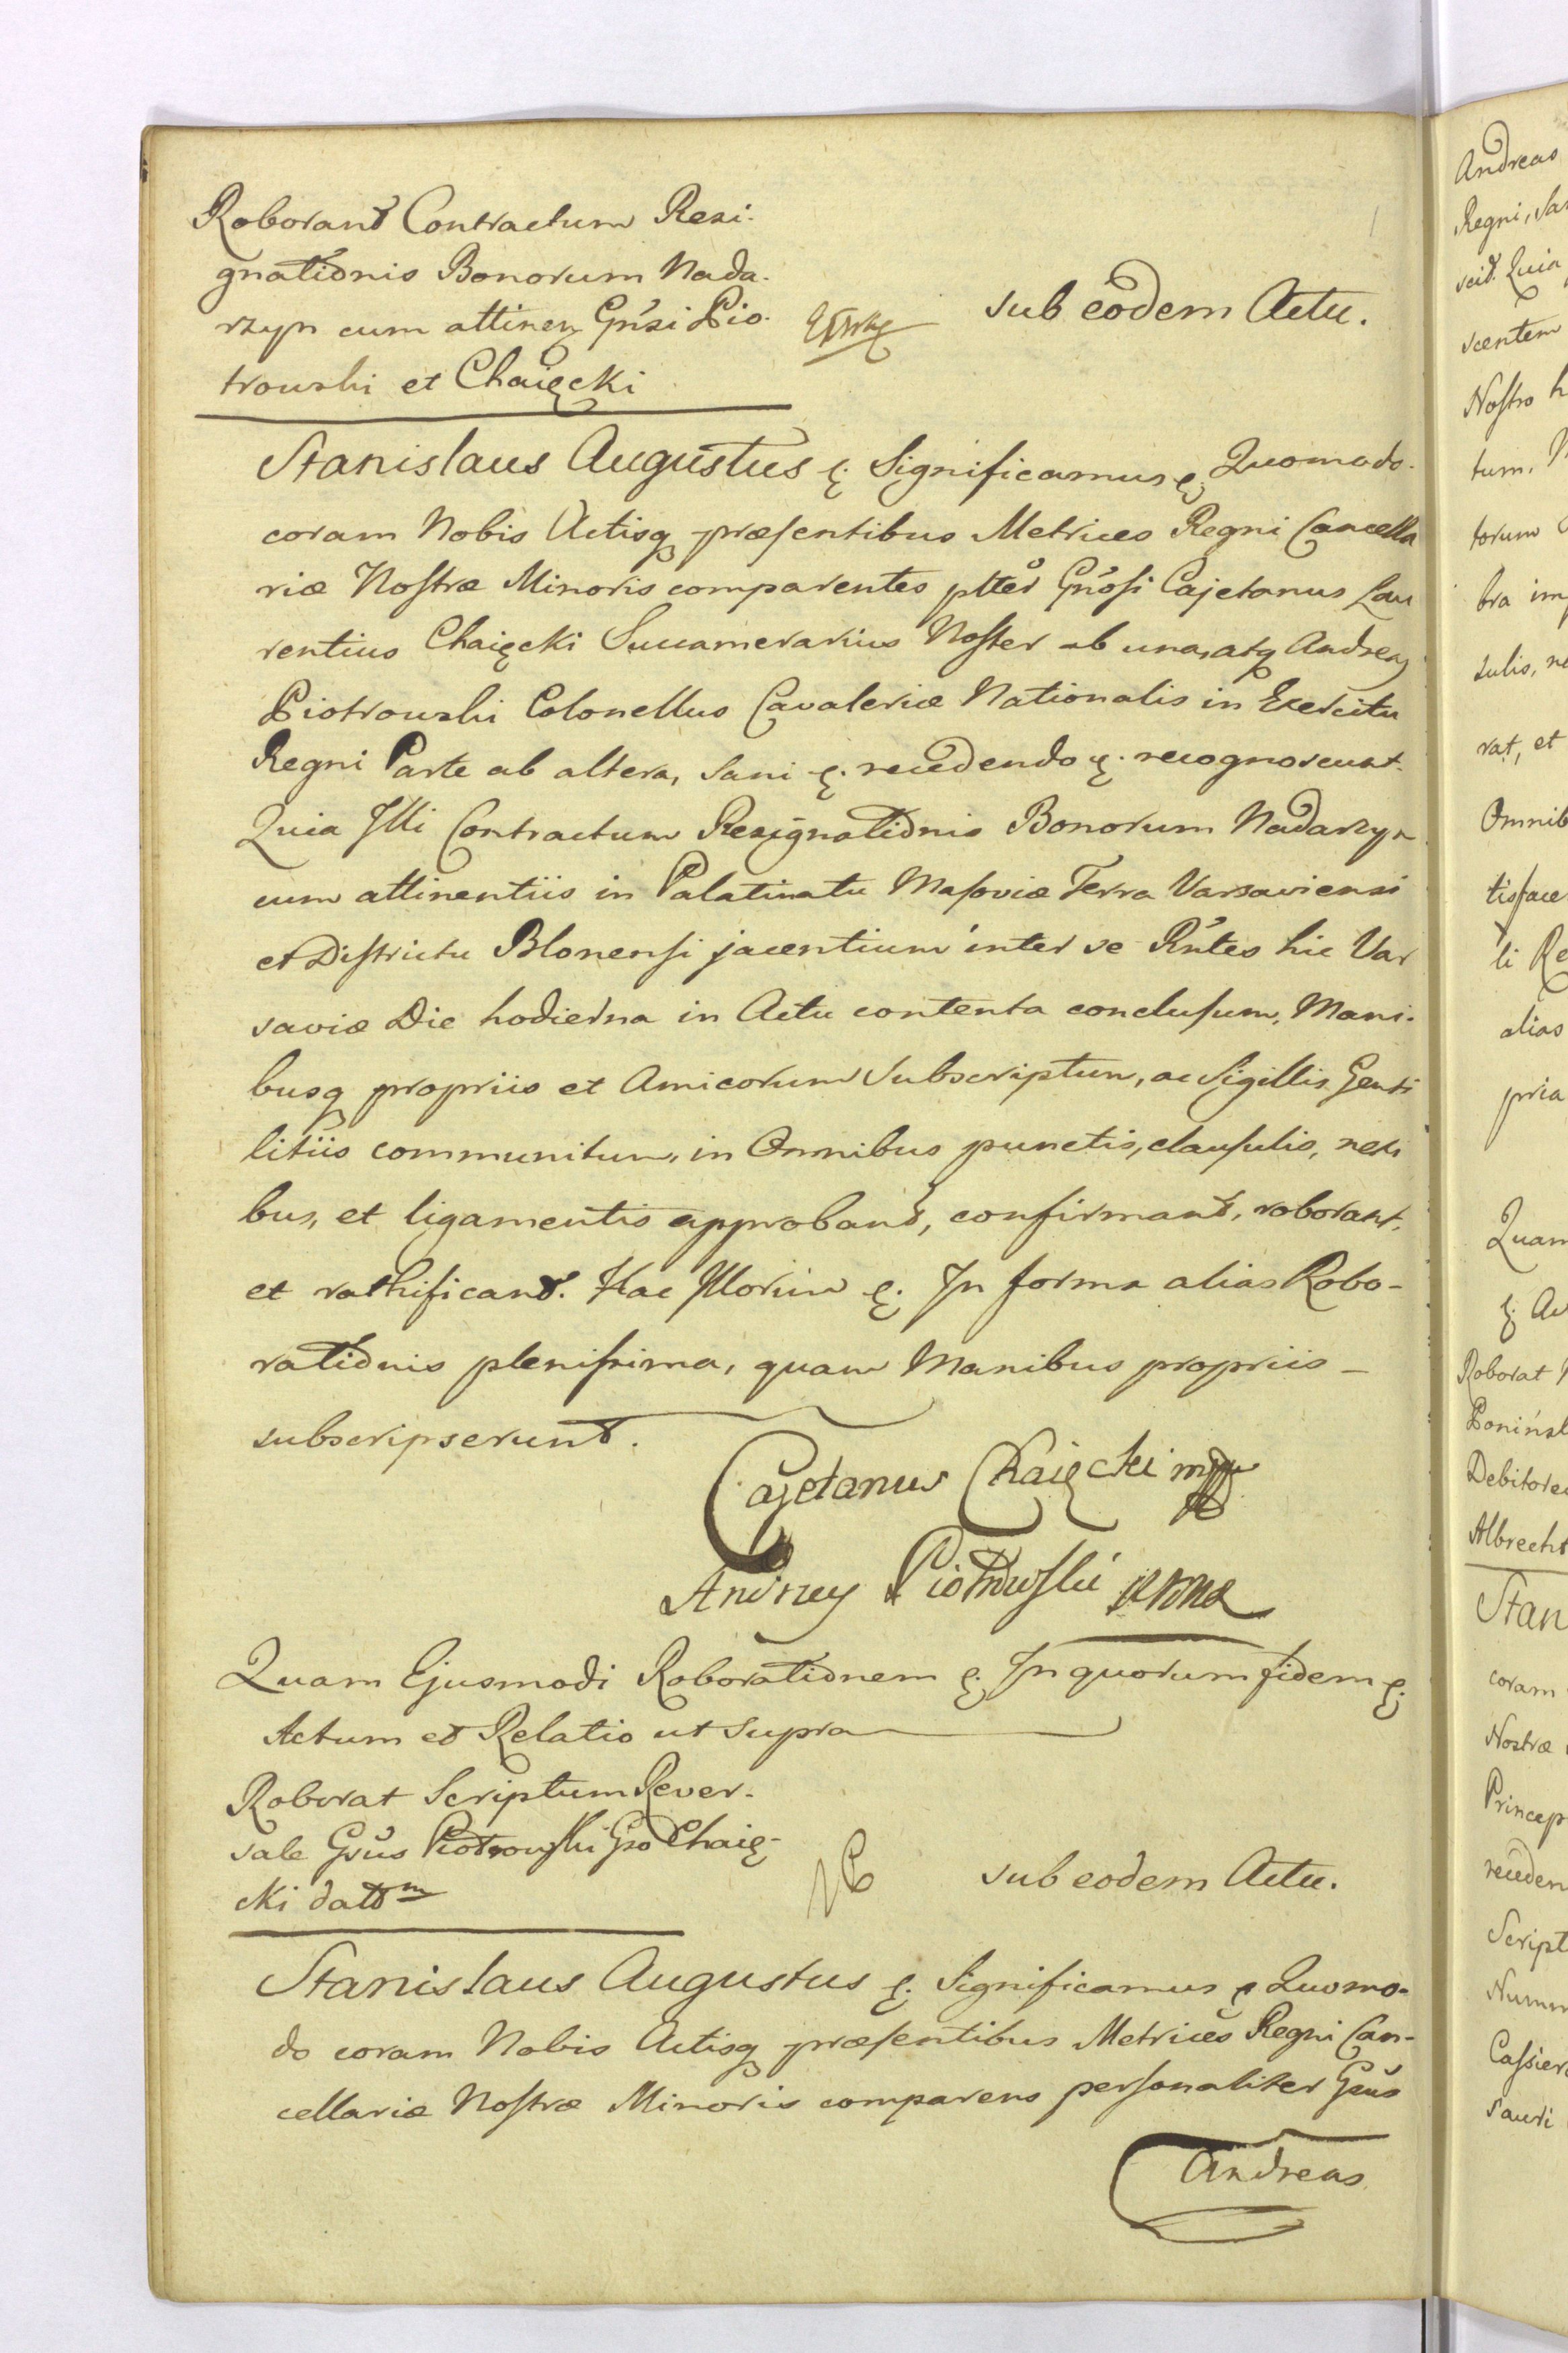 Roborant Contractum Resi-
gnationis Bonorum Nada-
rzyn cum attinen Gnsi Pio-
trowski et Chaięcki
sub eodem Actu.
Stanislaus Augustus &. Significamus &. Quomodo
coram Nobis Actisq præsentibus Metrices Regni Cancella
riæ Nostræ Minoris comparentes plter Gnosi Cajetanus Lau
rentius Chaięcki Succamerarius Noster ab una, atq Andreas
Piotrowski Colonellus Cavaleriæ Nationalis in Exercitu
Regni Parte ab altera, sani &. recedendo &. recognoscunt.
Quia Illi Contractum Resignationis Bonorum Nadarzyn
cum attinentiis in Palatinatu Masoviæ Terra Varsaviensi
et Districtu Blonensi jacentium inter se Rntes hic Var
saviæ Die hodierna in Actu contenta conclusum, Mani-
busq propriis et Amicorum Subscriptum, ac Sigillis Genti
litiis communitum, in Omnibus punctis, clausulis, nexi
bus, et ligamentis approbant, confirmant, roborant,
et rathificant. Hac Illorum &. In forma alias Robo-
rationis plenissima, quam Manibus propriis –
subscripserunt.
Cajetanus Chaięcki mpp
Andrzey Piotrowski
Quam Ejusmodi Roborationem &. In quorum fidem &.
Actum et Relatio ut supra
Roborat Scriptum Rever-
sale Gsus Piotrowski Gso Chaię-
cki dattm
sub eodem Actu.
Stanislaus Augustus &. Significamus &. Quomo-
do coram Nobis Actisq præsentibus Metrices Regni Can-
cellariæ Nostræ Minoris comparens personaliter Gsus
Andreas
Andreas
Regni, sa
scid. Quia
scentem
Nostro h
tum.
torum
bra im
sulis, ne
rat, et
Omnib
tisface
li Re
alias
pria
Quam
&. Ac
Roborat
Ponińsk
Debitore
Albrecht
Stan
coram
Nostræ
Princep
receden
Script
Numm
Cassier
sauri